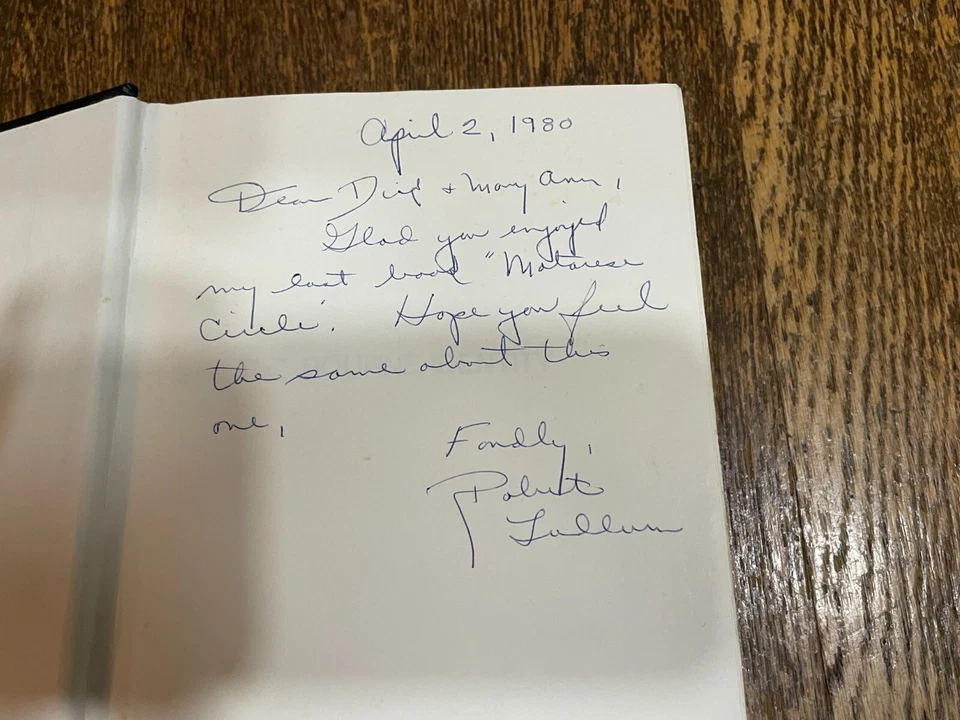 April 2, 1980
Dear Dick + Mary Ann,
Glad you enjoyed
my last book "Matarese
Circle'. Hope you feel
the same about this
one,
Fondly,
Robert
Ludlum